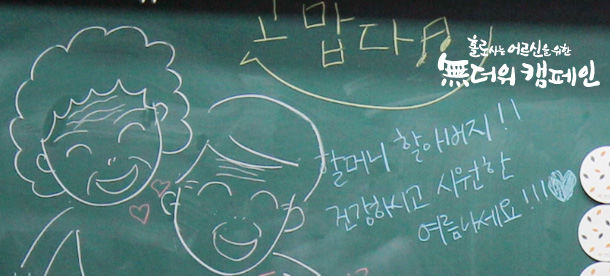 고맙다♬♪
홀로 사는 어르신을 위한
無더위 캠페인
할머니 할아버지!!
건강하시고 시원한
여름나세요!!!♥